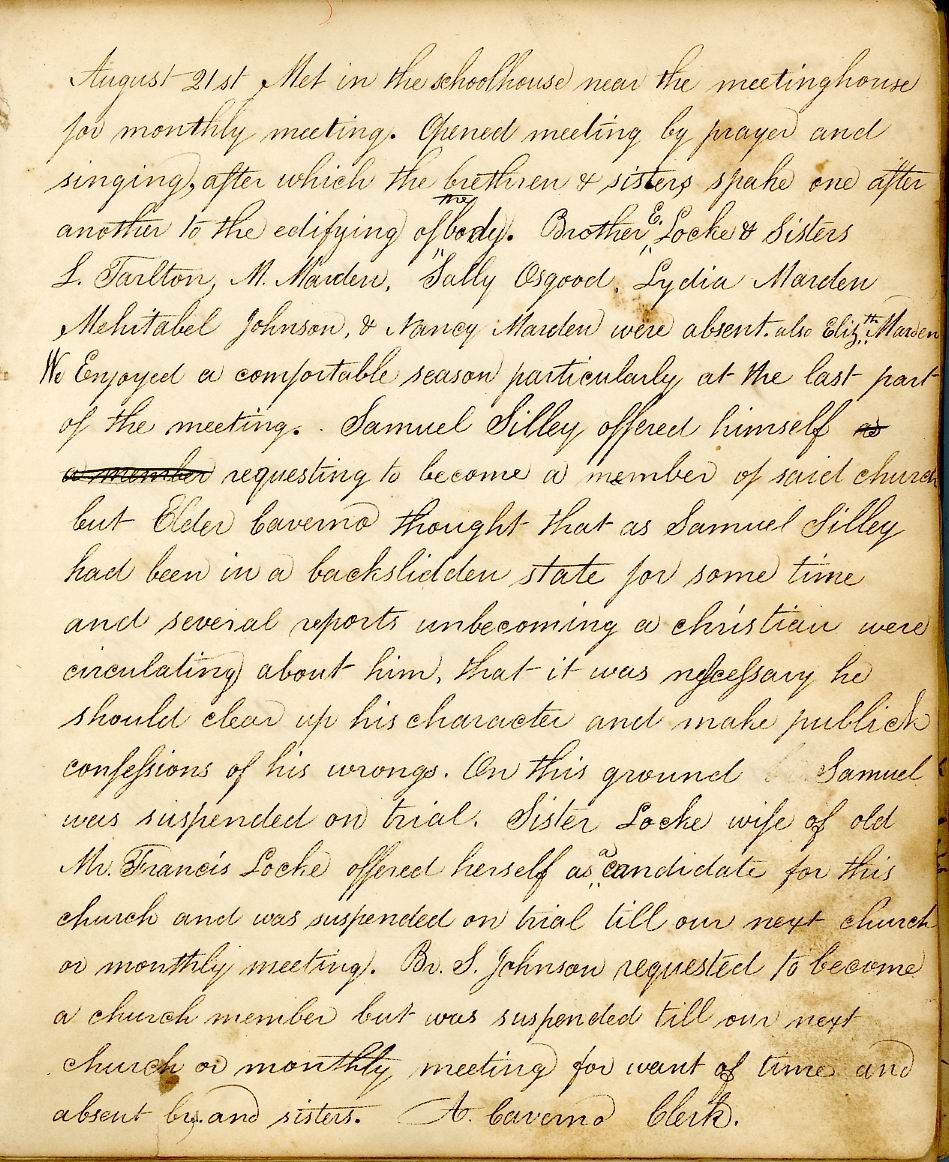 August 21st Met in the schoolhouse near the meetinghouse
for monthly meeting. Opened meeting by prayer and
singing, after which the brethren & sisters spake one after
another to the edifying of the body. Brother E. Locke & Sisters
L. Tarlton, M. Marden, Sally Osgood, Lydia Marden
Mehitabel Johnson, & Nancy Marden were absent. also Elizth Marden
We Enjoyed a comfortable season particularly at the last part
of the meeting. Samuel Silley offered himself as
a member requesting to become a member of said church
but Elder Caverno thought that as Samuel Silley
had been in a backslidden state for some time
and several reports unbecoming a christian were
circulating about him, that it was nescessary he
should clear up his character and make publick
confessions of his wrongs. On this ground Samuel
was suspended on trial. Sister Locke wife of old
Mr. Francis Locke offered herself as a candidate for this
church and was suspended on trial till our next church
or monthly meeting. Br. S. Johnson requested to become
a church member but was suspended till our next
church or monthly meeting for want of time and
absent br. and sisters. A. Caverno Clerk.